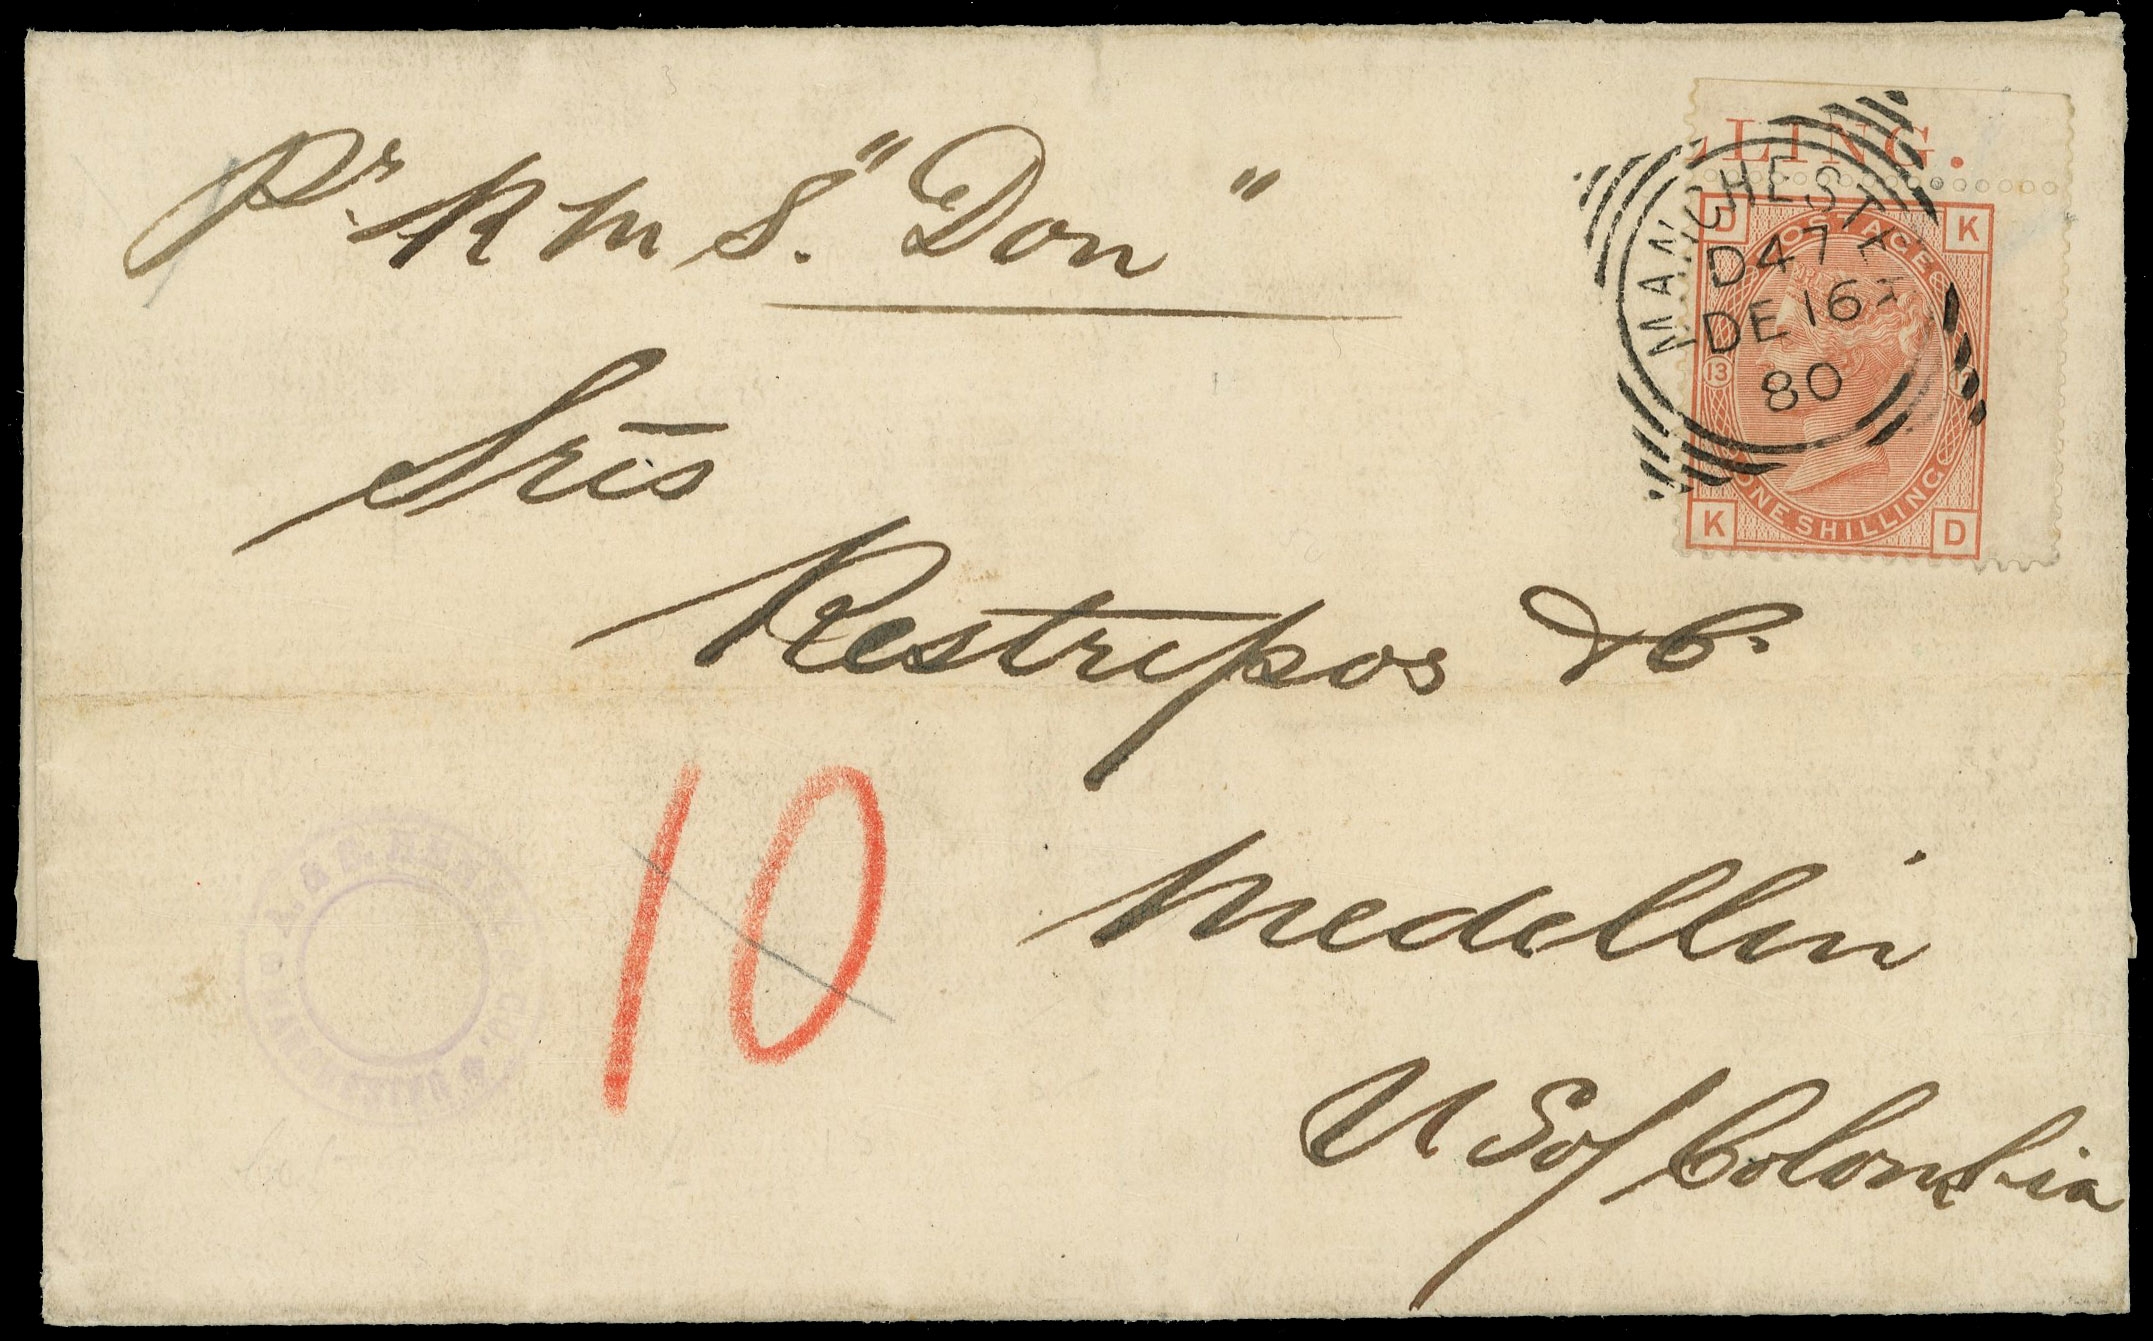 Pr. R M S. "Don"
LLING.
D K
POSTAGE
MANCHESTER
D47
DE 16
80
13
ONE SHILLING
K D
Srēs
Restrepos & C.
10
Medellin
U S of Colombia
A. & S. HENRY & CO.
MANCHESTER